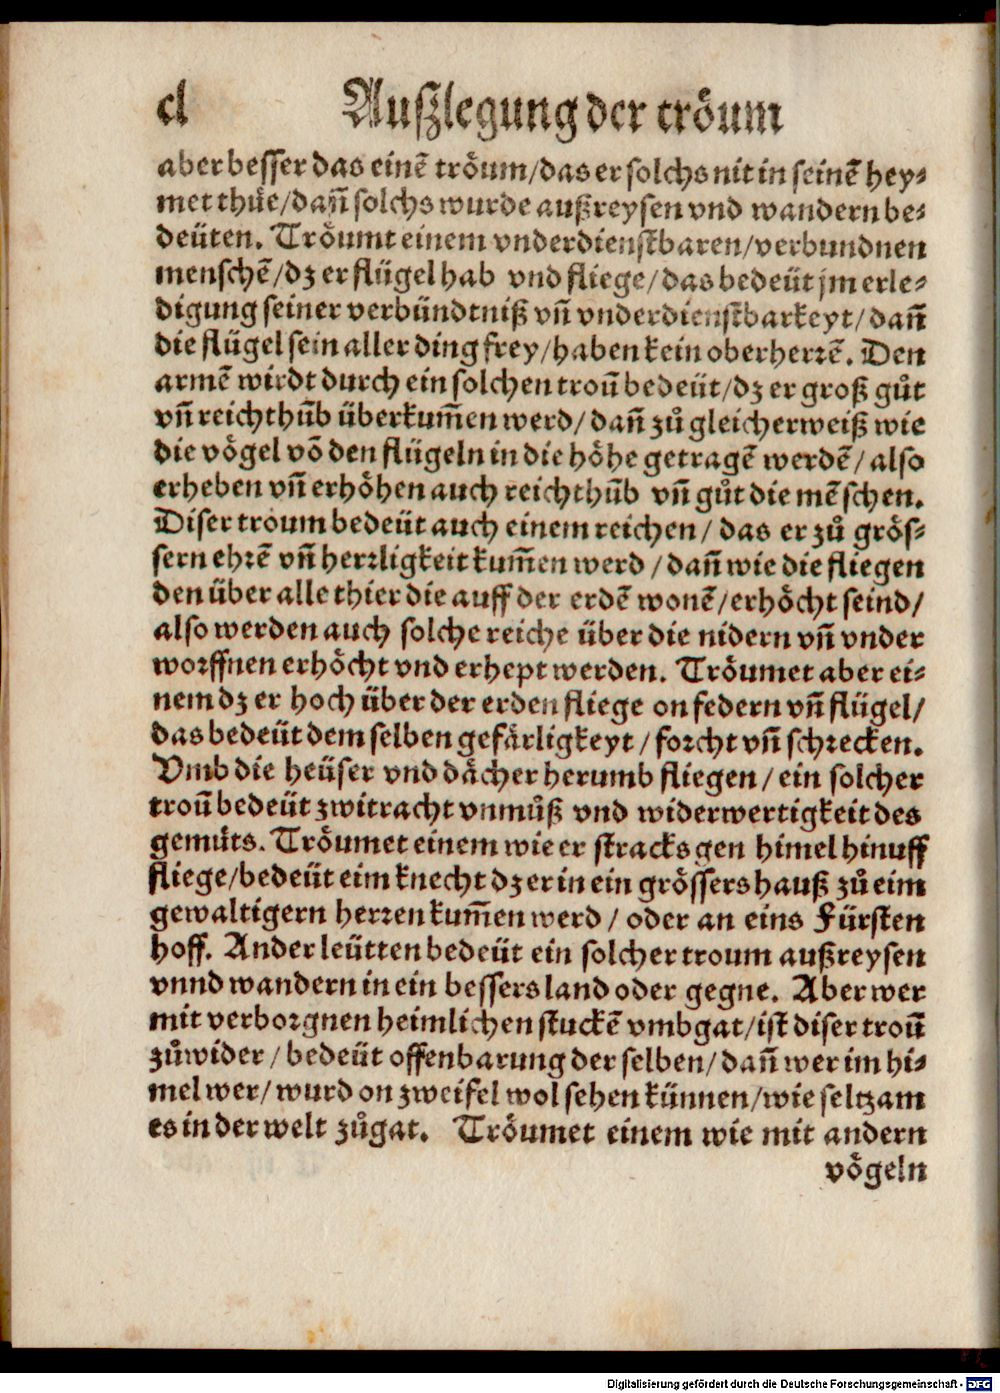 cl Außlegung der tröum
aber besser das einē tröum/das er solchs nit in seinē hey⸗
met thüe/dañ solchs wurde außreysen vnd wandern be⸗
deüten. Tröumt einem vnderdienstbaren/verbundnen
menschē/dz er flügel hab vnd fliege/das bedeüt jm erle⸗
digung seiner verbündtniß vñ vnderdienstbarkeyt/dañ
die flügel sein aller ding frey/haben kein oberherrē. Den
armē wirdt durch ein solchen troum̄ bedeüt/dz er groß gůt
vñ reichthūb überkum̄en werd/dañ zů gleicherweiß wie
die vögel vō den flügeln in die höhe getragē werdē/also
erheben vñ erhöhen auch reichthūb vñ gůt die mēschen.
Diser troum bedeüt auch einem reichen/das er zů grös⸗
sern ehrē vñ herrligkeit kum̄en werd/dañ wie die fliegen
den über alle thier die auff der erdē wonē/erhöcht seind/
also werden auch solche reiche über die nidern vñ vnder
worffnen erhöcht vnd erhept werden. Tröumet aber ei⸗
nem dz er hoch über der erden fliege on federn vñ flügel/
das bedeüt dem selben gefärligkeyt/forcht vñ schrecken.
Vmb die heüser vnd dächer herumb fliegen/ein solcher
troum̄ bedeüt zwitracht vnmůß vnd widerwertigkeit des
gemüts. Tröumet einem wie er stracks gen himel hinuff
fliege/bedeüt eim knecht dz er in ein grössers hauß zů eim
gewaltigern herren kum̄en werd/oder an eins Fürsten
hoff. Ander leütten bedeüt ein solcher troum außreysen
vnnd wandern in ein bessers land oder gegne. Aber wer
mit verborgnen heimlichen stuckē vmbgat/ist diser troum̄
zůwider/bedeüt offenbarung der selben/dañ wer im hi⸗
mel wer/wurd on zweifel wol sehen künnen/wie seltzam
es in der welt zůgat. Tröumet einem wie mit andern
vögeln
Digitalisierung gefördert durch die Deutsche Forschungsgemeinschaft - DFG